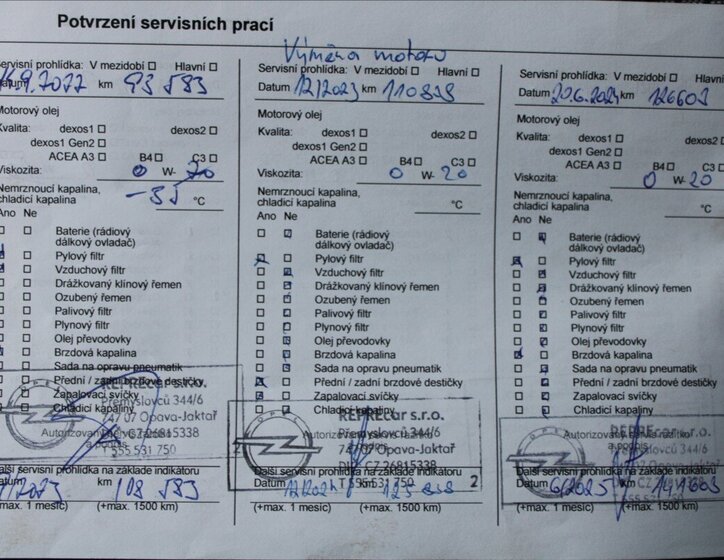 Potvrzení servisních prací
Servisní prohlídka: V mezidobí Hlavní
Datum 14.9.2022 km 93 583
Motorový olej
Kvalita: dexos1 dexos2
dexos1 Gen2
ACEA A3 B4 C3
Viskozita: 0 W- 20
Nemrznoucí kapalina,
chladicí kapalina -35 °C
Ano Ne
Baterie (rádiový
dálkový ovladač)
Pylový filtr
Vzduchový filtr
Drážkovaný klínový řemen
Ozubený řemen
Palivový filtr
Plynový filtr
Olej převodovky
Brzdová kapalina
Sada na opravu pneumatik
Přední / zadní brzdové destičky
Zapalovací svíčky
Chladicí kapaliny
OPEL
REPREcar s.r.o.
Přemyslovců 344/6
747 07 Opava-Jaktař
DIČ: CZ 26815338
T 555 531 750
Další servisní prohlídka na základě indikátoru
Datum /2023 km 108 583
(+max. 1 měsíc) (+max. 1500 km)
Výměna motoru
Servisní prohlídka: V mezidobí Hlavní
Datum 12/2023 km 110838
Motorový olej
Kvalita: dexos1 dexos2
dexos1 Gen2
ACEA A3 B4 C3
Viskozita: 0 W- 20
Nemrznoucí kapalina,
chladicí kapalina °C
Ano Ne
Baterie (rádiový
dálkový ovladač)
Pylový filtr
Vzduchový filtr
Drážkovaný klínový řemen
Ozubený řemen
Palivový filtr
Plynový filtr
Olej převodovky
Brzdová kapalina
Sada na opravu pneumatik
Přední / zadní brzdové destičky
Zapalovací svíčky
Chladicí kapaliny
OPEL
REPREcar s.r.o.
Přemyslovců 344/6
747 07 Opava-Jaktař
DIČ: CZ 26815338
T 555 531 750
2
Další servisní prohlídka na základě indikátoru
Datum 12/2024 km 125 838
(+max. 1 měsíc) (+max. 1500 km)
Servisní prohlídka: V mezidobí Hlavní
Datum 20.6.2024 km 126603
Motorový olej
Kvalita: dexos1 dexos2
dexos1 Gen2
ACEA A3 B4 C3
Viskozita: 0 W- 20
Nemrznoucí kapalina,
chladicí kapalina °C
Ano Ne
Baterie (rádiový
dálkový ovladač)
Pylový filtr
Vzduchový filtr
Drážkovaný klínový řemen
Ozubený řemen
Palivový filtr
Plynový filtr
Olej převodovky
Brzdová kapalina
Sada na opravu pneumatik
Přední / zadní brzdové destičky
Zapalovací svíčky
Chladicí kapaliny
REPREcar s.r.o.
Přemyslovců 344/6
747 07 Opava-Jaktař
DIČ: CZ 26815338
555 531 750
Další servisní prohlídka na základě indikátoru
Datum 6/2025 km 141603
(+max. 1 měsíc) (+max. 1500 km)